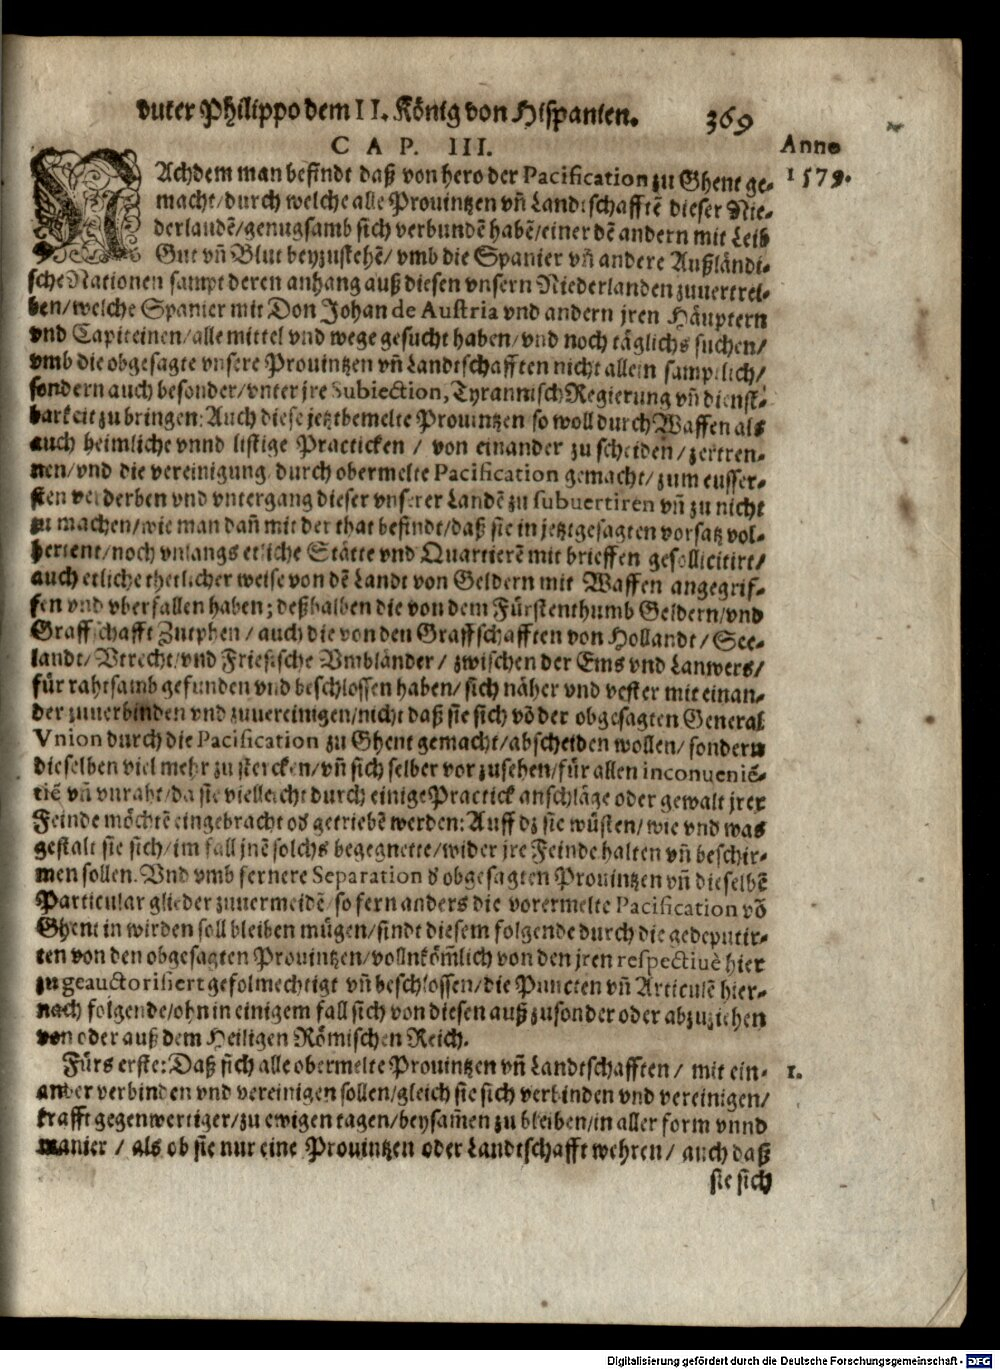 vnter Philippo dem II. König von Hispanien. 369
CAP. III.
Anno
1579.
NAchdem man befindt daß von hero der Pacification zu Ghent ge-
macht/durch welche alle Prouintzen vñ Landtschafftẽ dieser Nie-
derlandẽ/genugsamb sich verbundẽ habẽ/einer dẽ andern mit Leib
Gut vñ Blut beyzustehẽ/ vmb die Spanier vñ andere Außländi-
sche Nationen sampt deren anhang auß diesen vnsern Niederlanden zuuertrei-
ben/welche Spanier mit Don Johan de Austria vnd andern jren Häuptern
vnd Capiteinen/alle mittel vnd wege gesucht haben/vnd noch täglichs suchen/
vmb die obgesagte vnsere Prouintzen vñ Landtschafften nicht allein samptlich/
sondern auch besonder/vnter jre Subiection, Tyrannisch Regierung vñ dienst-
barkeit zu bringen: Auch diese jetztbemelte Prouintzen so woll durch Waffen als
auch heimliche vnnd listige Practicken / von einander zu scheiden/zertren-
nen/vnd die vereinigung durch obermelte Pacification gemacht/zum eusser-
sten verderben vnd vntergang dieser vnserer Landẽ zu subuertiren vñ zu nicht
zu machen/wie man dañ mit der that befindt/daß sie in jetztgesagten vorsatz vol-
hertent/noch vnlangs etliche Stätte vnd Quartierẽ mit brieffen gesollicitirt/
auch etliche thetlicher weise von dẽ Landt von Geldern mit Waffen angegrif-
fen vnd vberfallen haben; deßhalben die von dem Fürstenthumb Geldern/vnd
Graffschafft Zutphen/auch die von den Graffschafften von Hollandt/See-
landt/Vtrecht/vnd Friesische Vmbländer/zwischen der Ems vnd Lanwers/
für rahtsamb gefunden vnd beschlossen haben/sich näher vnd vester mit einan-
der zuuerbinden vnd zuuereinigen/nicht daß sie sich võ der obgesagten General
Vnion durch die Pacification zu Ghent gemacht/abscheiden wollen/sondern
dieselben viel mehr zu stercken/vñ sich selber vorzusehen/für allen inconueniẽ-
tiẽ vñ vnraht/da sie vielleicht durch einige Practick anschläge oder gewalt jrer
Feinde möchtẽ eingebracht oď getriebẽ werden: Auff dz sie wüsten/wie vnd was
gestalt sie sich/im fall jnẽ solchs begegnette/wider jre Feinde halten vñ beschir-
men sollen. Vnd vmb fernere Separation ď obgesagten Prouintzen vñ dieselbẽ
Particular glieder zuuermeidẽ/so fern anders die vorermelte Pacification võ
Ghent in wirden soll bleiben mügen/sindt diesem folgende durch die gedeputir-
ten von den obgesagten Prouintzen/vollnköm̃lich von den jren respectiuẽ hier
zu geauctorisiert gefolmechtigt vñ beschlossen/die Puncten vñ Articulẽ hier-
nach folgende/ohn in einigem fall sich von diesen auß zusonder oder abzuziehen
von oder auß dem Heiligen Römischen Reich.
Fürs erste: Daß sich alle obermelte Prouintzen vñ Landtschafften/ mit ein- 1.
ander verbinden vnd vereinigen sollen/gleich sie sich verbinden vnd vereinigen/
krafft gegenwertiger/zu ewigen tagen/beysam̃en zu bleiben/in aller form vnnd
manier / als ob sie nur eine Prouintzen oder Landtschafft wehren/ auch daß
sie sich
Digitalisierung gefördert durch die Deutsche Forschungsgemeinschaft - DFG